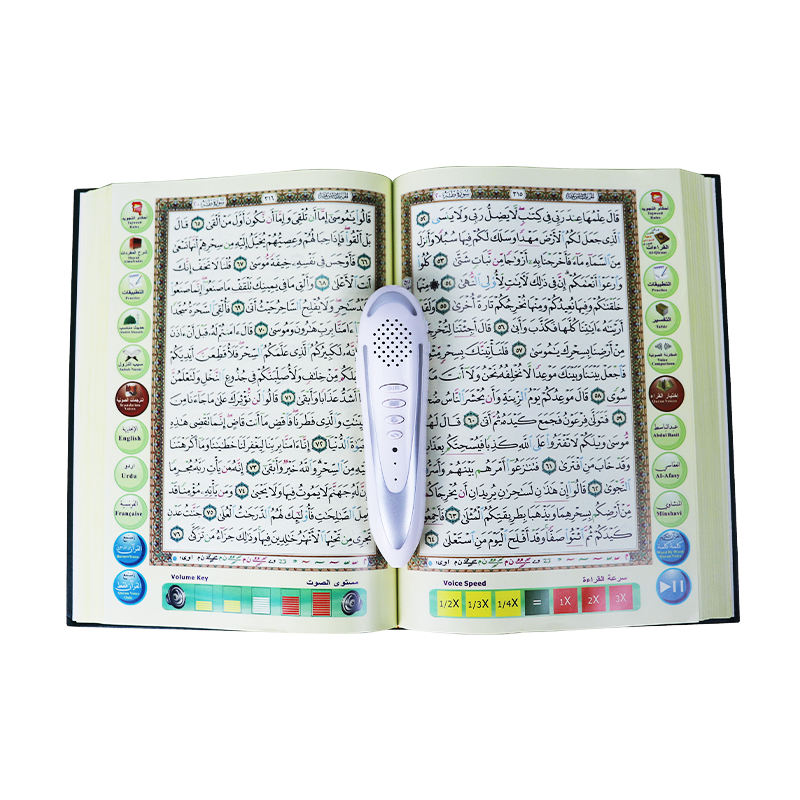 سُورَةُ طه ٣١٥
قَالَ عِلْمُهَا عِندَ رَبِّى فِى كِتَٰبٍ لَّا يَضِلُّ رَبِّى وَلَا يَنسَى ٥٢
ٱلَّذِى جَعَلَ لَكُمُ ٱلْأَرْضَ مَهْدًا وَسَلَكَ لَكُمْ فِيهَا سُبُلًا وَأَنزَلَ
مِنَ ٱلسَّمَآءِ مَآءً فَأَخْرَجْنَا بِهِۦٓ أَزْوَٰجًا مِّن نَّبَاتٍ شَتَّىٰ ٥٣ كُلُوا۟
وَٱرْعَوْا۟ أَنْعَٰمَكُمْ إِنَّ فِى ذَٰلِكَ لَءَايَٰتٍ لِّأُو۟لِى ٱلنُّهَىٰ ٥٤ ۞ مِنْهَا
خَلَقْنَٰكُمْ وَفِيهَا نُعِيدُكُمْ وَمِنْهَا نُخْرِجُكُمْ تَارَةً أُخْرَىٰ ٥٥
أَرَيْنَٰهُ ءَايَٰتِنَا كُلَّهَا فَكَذَّبَ وَأَبَىٰ ٥٦ قَالَ أَجِئْتَنَا
مِنْ أَرْضِنَا بِسِحْرِكَ يَٰمُوسَىٰ ٥٧ فَلَنَأْتِيَنَّكَ بِسِحْرٍ
فَٱجْعَلْ بَيْنَنَا وَبَيْنَكَ مَوْعِدًا لَّا نُخْلِفُهُۥ نَحْنُ وَلَآ أَنتَ
سُوًى ٥٨ قَالَ مَوْعِدُكُمْ يَوْمُ ٱلزِّينَةِ وَأَن يُحْشَرَ ٱلنَّاسُ
فَتَوَلَّىٰ فِرْعَوْنُ فَجَمَعَ كَيْدَهُۥ ثُمَّ أَتَىٰ ٦٠ قَالَ
مُوسَىٰ وَيْلَكُمْ لَا تَفْتَرُوا۟ عَلَى ٱللَّهِ كَذِبًا فَيُسْحِتَكُم
وَقَدْ خَابَ مَنِ ٱفْتَرَىٰ ٦١ فَتَنَٰزَعُوٓا۟ أَمْرَهُم بَيْنَهُمْ
ٱلنَّجْوَىٰ ٦٢ قَالُوٓا۟ إِنْ هَٰذَٰنِ لَسَٰحِرَٰنِ يُرِيدَانِ أَن يُخْرِجَاكُم
مِّنْ أَرْضِكُم بِسِحْرِهِمَا وَيَذْهَبَا بِطَرِيقَتِكُمُ ٱلْمُثْلَىٰ ٦٣
كَيْدَكُمْ ثُمَّ ٱئْتُوا۟ صَفًّا وَقَدْ أَفْلَحَ ٱلْيَوْمَ مَنِ ٱسْتَعْلَىٰ ٦٤
أحكام التجويد
Tajweed Rules
القراءات
Al-Qiraat
التطبيقات
Practice
التفسير
Tafsir
مقارنة الصوتية
Voice Comparison
إختيار القراء
Quran Voices
عبدالباسط
Abdul Basit
العفاسي
Al-Afasy
المنشاوي
Minshavi
كلمة كلمة
Word by Word
Voice Speed سرعة القراءة
1/2X 1/3X 1/4X = 1X 2X 3X
سُورَةُ طه ٣١٦
قَالُوا۟ يَٰمُوسَىٰٓ إِمَّآ أَن تُلْقِىَ وَإِمَّآ أَن نَّكُونَ أَوَّلَ مَنْ أَلْقَىٰ ٦٥
قَالَ بَلْ أَلْقُوا۟ فَإِذَا حِبَالُهُمْ وَعِصِيُّهُمْ يُخَيَّلُ إِلَيْهِ مِن سِحْرِهِمْ أَنَّهَا تَسْعَىٰ
٦٦ فَأَوْجَسَ فِى نَفْسِهِۦ خِيفَةً مُّوسَىٰ ٦٧ قُلْنَا لَا تَخَفْ إِنَّكَ
أَنتَ ٱلْأَعْلَىٰ ٦٨ وَأَلْقِ مَا فِى يَمِينِكَ تَلْقَفْ مَا صَنَعُوٓا۟ إِنَّمَا صَنَعُوا۟
سَٰحِرٍ وَلَا يُفْلِحُ ٱلسَّاحِرُ حَيْثُ أَتَىٰ ٦٩ فَأُلْقِىَ ٱلسَّحَرَةُ سُجَّدًا
ءَامَنَّا بِرَبِّ هَٰرُونَ وَمُوسَىٰ ٧٠ قَالَ ءَامَنتُمْ لَهُۥ قَبْلَ أَنْ ءَاذَنَ
لَكَبِيرُكُمُ ٱلَّذِى عَلَّمَكُمُ ٱلسِّحْرَ فَلَأُقَطِّعَنَّ أَيْدِيَكُمْ
مِّنْ خِلَٰفٍ وَلَأُصَلِّبَنَّكُمْ فِى جُذُوعِ ٱلنَّخْلِ وَلَتَعْلَمُنَّ
عَذَابًا وَأَبْقَىٰ ٧١ قَالُوا۟ لَن نُّؤْثِرَكَ عَلَىٰ مَا جَآءَنَا مِنَ
وَٱلَّذِى فَطَرَنَا فَٱقْضِ مَآ أَنتَ قَاضٍ إِنَّمَا تَقْضِى هَٰذِهِ
ٱلدُّنْيَآ ٧٢ إِنَّآ ءَامَنَّا بِرَبِّنَا لِيَغْفِرَ لَنَا خَطَٰيَٰنَا وَمَآ أَكْرَهْتَنَا
مِنَ ٱلسِّحْرِ وَٱللَّهُ خَيْرٌ وَأَبْقَىٰٓ ٧٣ إِنَّهُۥ مَن يَأْتِ رَبَّهُۥ مُجْرِمًا
جَهَنَّمَ لَا يَمُوتُ فِيهَا وَلَا يَحْيَىٰ ٧٤ وَمَن يَأْتِهِۦ مُؤْمِنًا قَدْ
ٱلصَّٰلِحَٰتِ فَأُو۟لَٰٓئِكَ لَهُمُ ٱلدَّرَجَٰتُ ٱلْعُلَىٰ ٧٥ جَنَّٰتُ عَدْنٍ
تَجْرِى مِن تَحْتِهَا ٱلْأَنْهَٰرُ خَٰلِدِينَ فِيهَا وَذَٰلِكَ جَزَآءُ مَن تَزَكَّىٰ ٧٦
أحكام التجويد
Tajweed Rules
شرح المفردات
التطبيقات
Practice
حديث مناسب
سبب النزول
الترجمات الصوتية
Translation Voices
الإنجليزية
English
اردو
Urdu
الفرنسية
Française
Volume Key مستوى الصوت